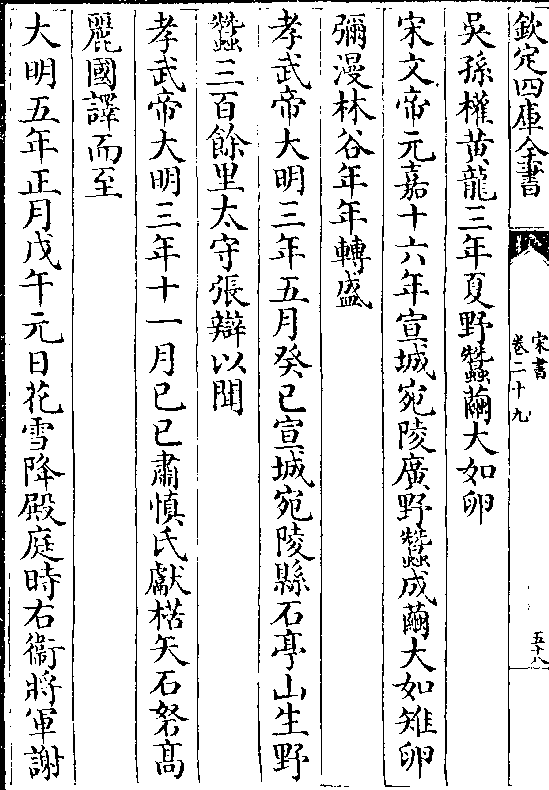 欽定四庫全書
宋書
卷二十九
五十八
吳孫權黃龍三年夏野蠶繭大如卵
宋文帝元嘉十六年宣城宛陵廣野蠶成繭大如雉卵
彌漫林谷年年轉盛
孝武帝大明三年五月癸巳宣城宛陵縣石亭山生野
蠶三百餘里太守張辯以聞
孝武帝大明三年十一月己巳肅慎氏獻楛矢石砮高
麗國譯而至
大明五年正月戊午元日花雪降殿庭時右衞將軍謝